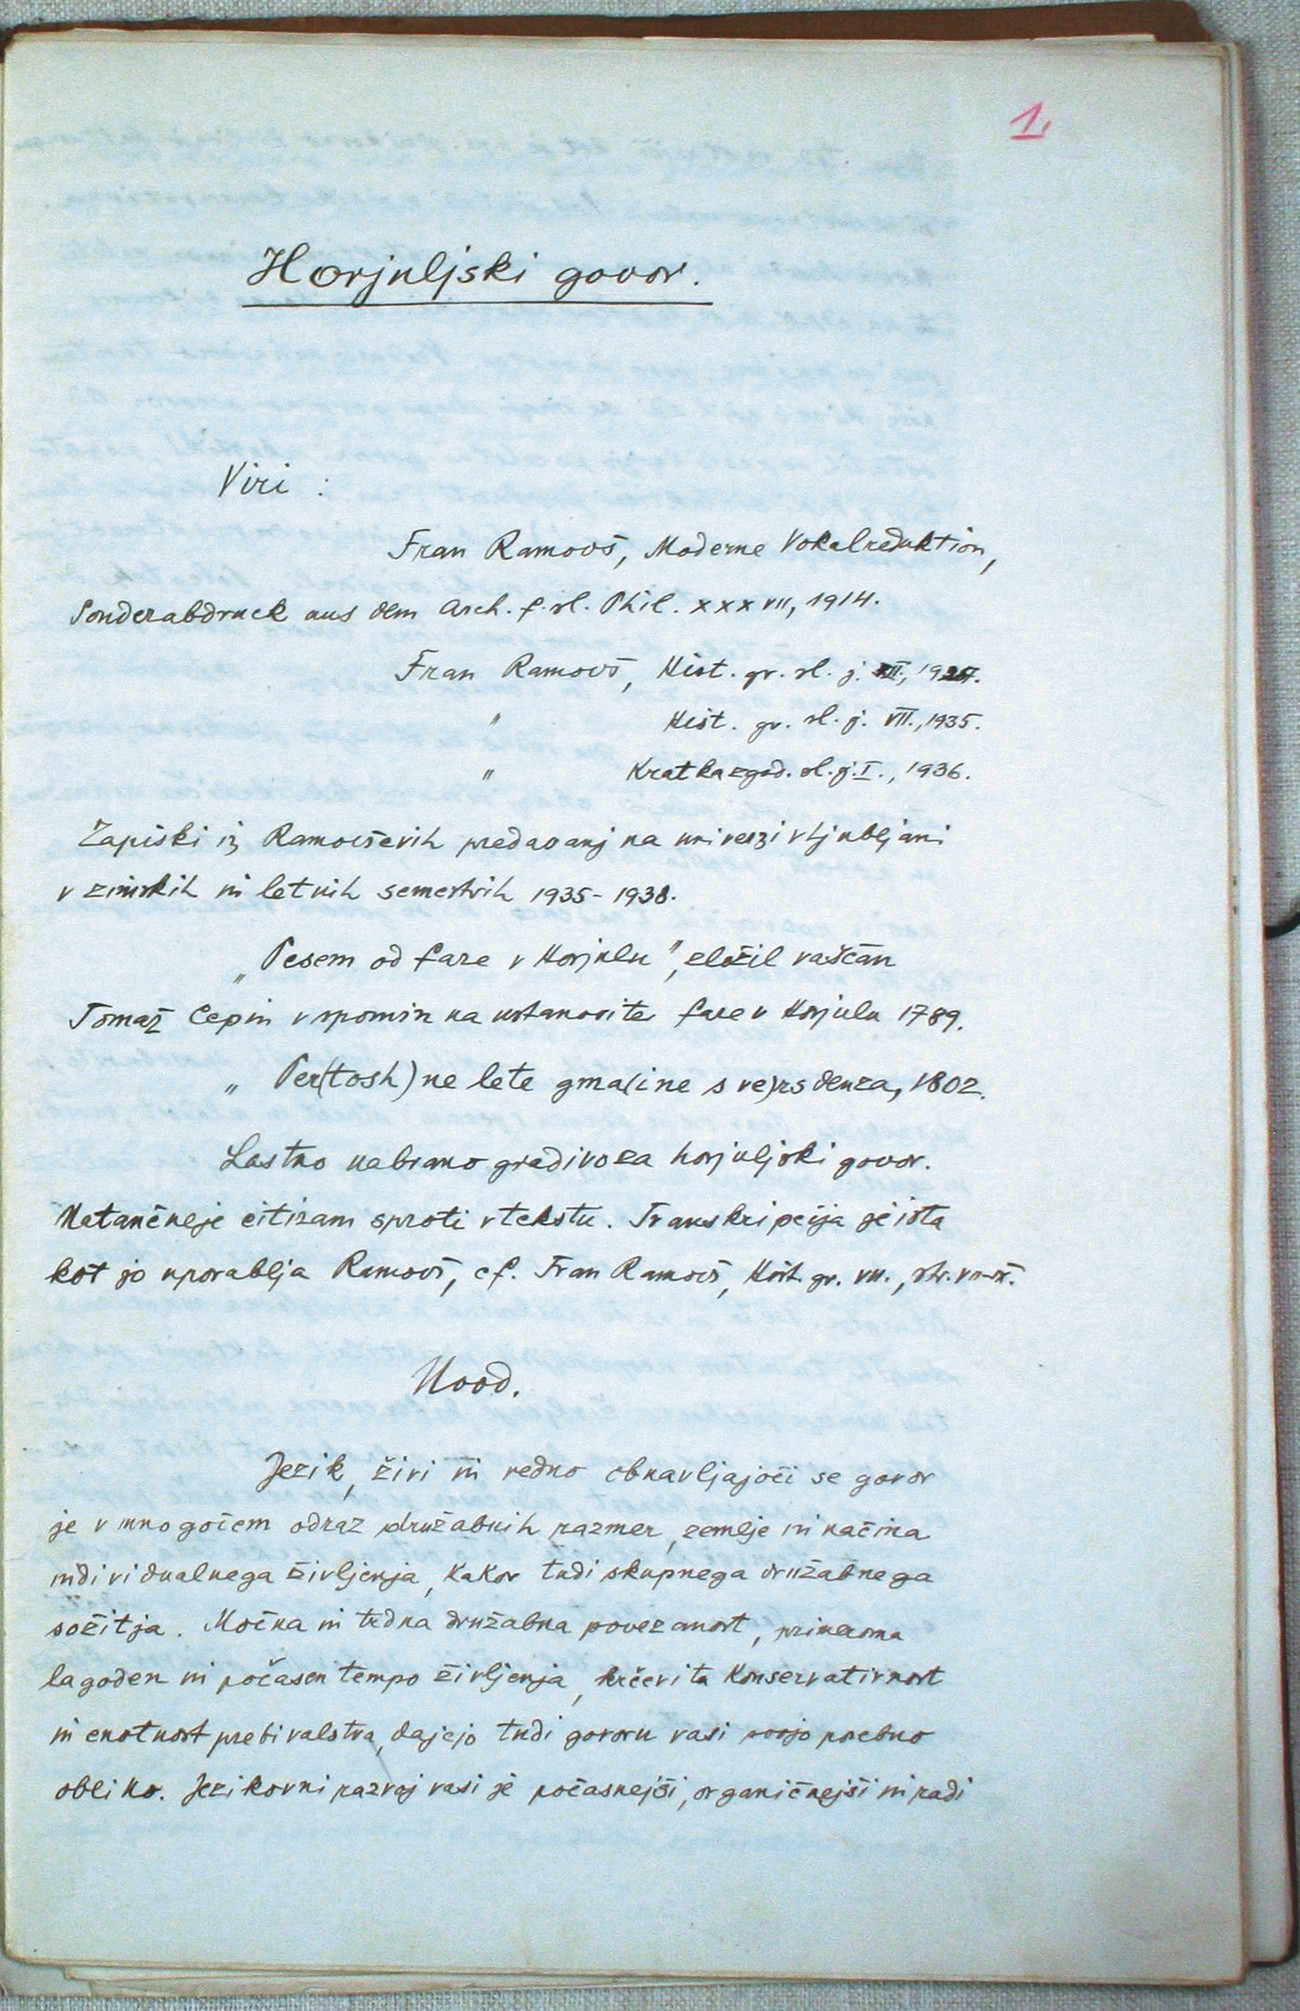 1.
Horjuljski govor.
Viri :
Fran Ramovš, Moderne Vokalreduktion,
Sonderabdruck aus dem Arch. f. sl. Phil. XXXVII, 1914.
Fran Ramovš, Hist. gr. sl. j. II., 1924.
" Hist. gr. sl. j. VII., 1935.
" Kratka zgod. sl. j. I., 1936.
Zapiski iz Ramovševih predavanj na univerzi v Ljubljani
v zimskih in letnih semestrih 1935-1938.
„Pesem od fare v Horjulu", zložil vaščan
Tomaž Čepin v spomin na ustanovite fare v Horjulu 1789.
„Per(tosh)ne lete gma(ine s ve)rsdenza, 1802.
Lastno nabrano gradivo za horjuljski govor.
Natančneje citiram sproti v tekstu. Transkripcija je ista
kot jo uporablja Ramovš, cf. Fran Ramovš, Hist. gr. VII., str. VII-IX.
Uvod.
Jezik, živi in redno obnavljajoči se govor
je v mnogočem odraz družabnih razmer, zemlje in načina
individualnega življenja, kakor tudi skupnega družabnega
sožitja. Močna in trdna družabna povezanost, primeroma
lagoden in počasen tempo življenja, krčevita konservativnost
in enotnost prebivalstva, dajejo tudi govoru vasi svojo posebno
obliko. Jezikovni razvoj vasi je počasnejši, organičnejši in radi